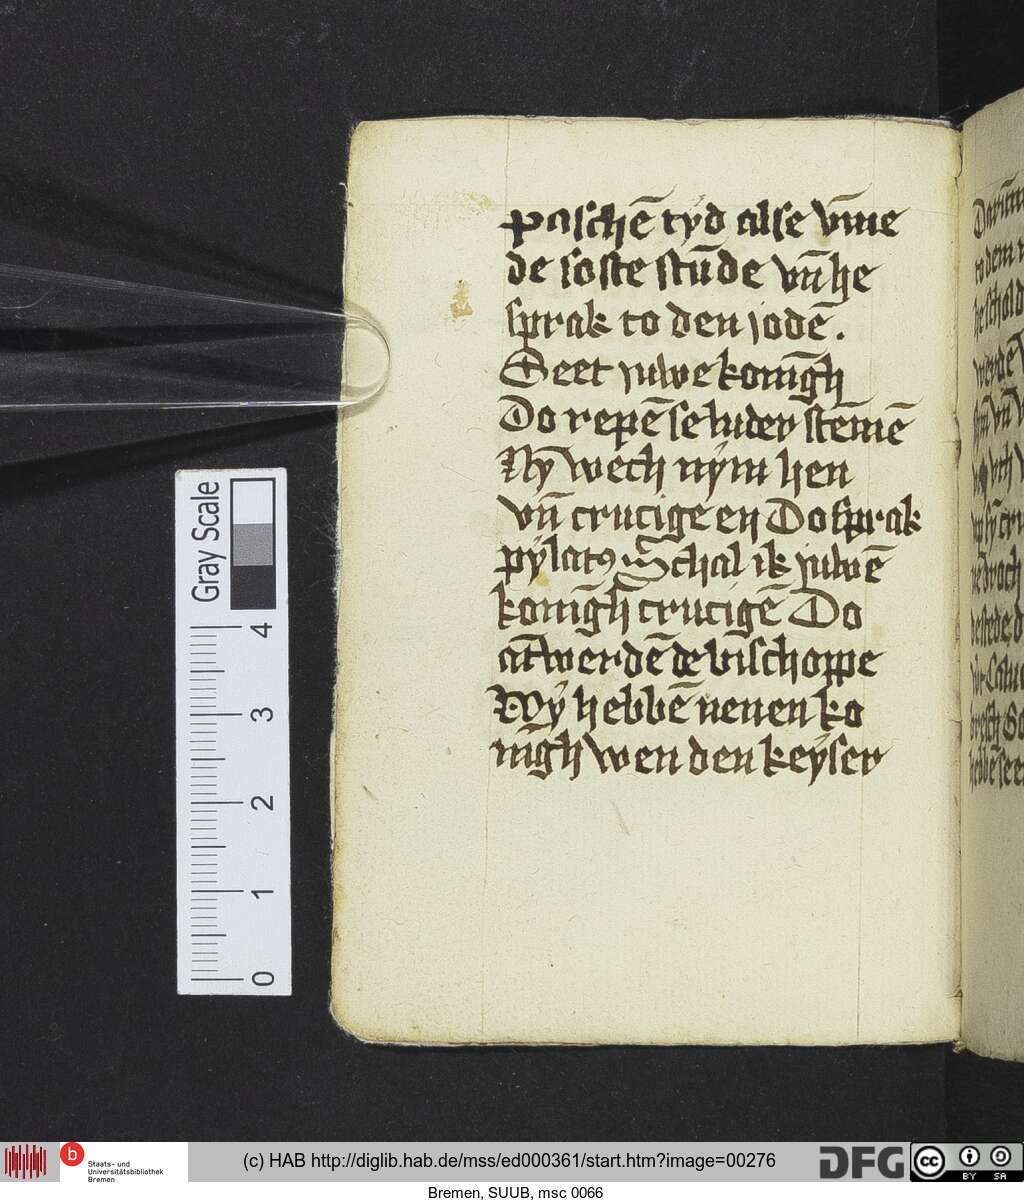 paschē tyd alse vm̄e
de soste stūde vn̄ he
sprak to den jodē.
Seet juwe konīgh
Do repē se luder stēmē
Nȳ wech nym hen
vn̄ crucige en Do sprak
pylatꝯ schal ik juwē
konīgh crucigē Do
at̄werdē de bīschoppe
Wy hebbē nenen ko
nigh wen den keyser
Gray Scale
0 1 2 3 4
b
Staats- und
Universitätsbibliothek
Bremen
(c) HAB http://diglib.hab.de/mss/ed000361/start.htm?image=00276
DFG
cc BY SA
Bremen, SUUB, msc 0066